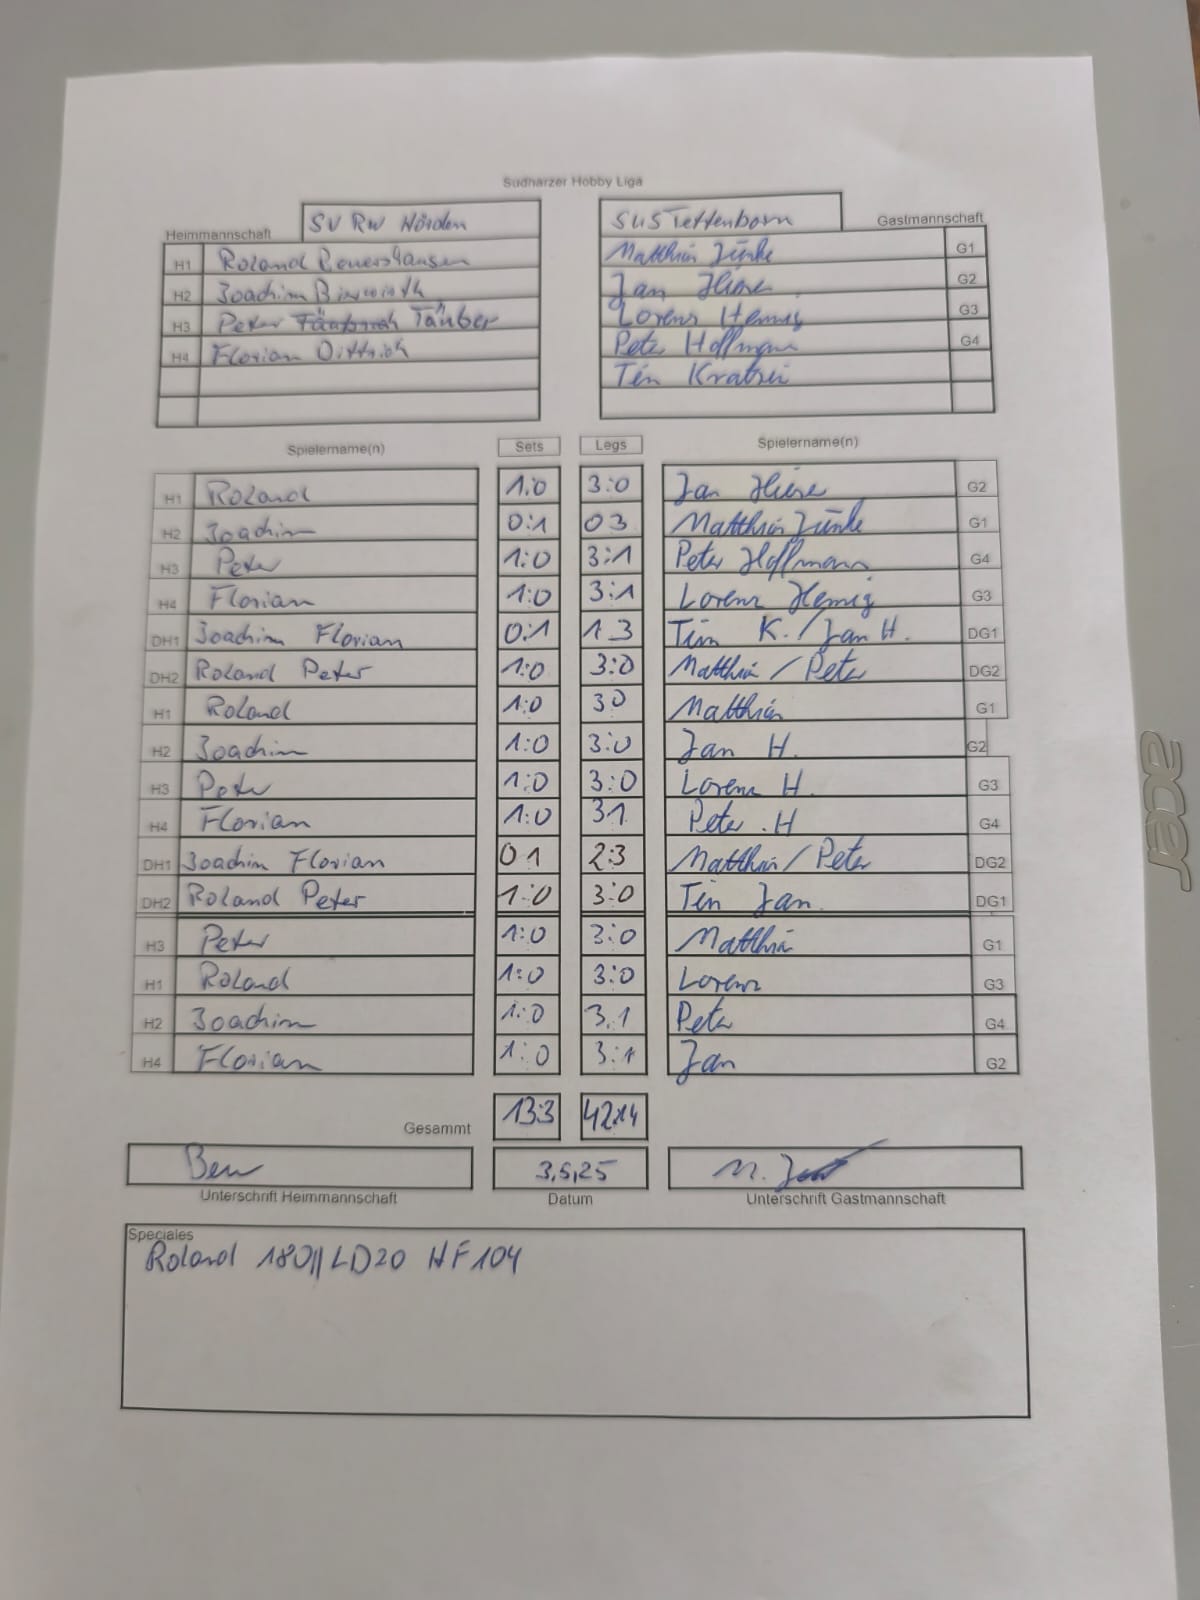 Südharzer Hobby Liga
Heimmannschaft SV RW Hörden SUS Tettenborn Gastmannschaft
H1 Roland Beuershausen Matthias G1
H2 Joachim Jan Hiese G2
H3 Peter Täuber Lorenz Hennig G3
H4 Florian Dittrich Peter Hoffmann G4
Tim
Spielername(n) Sets Legs Spielername(n)
H1 Roland 1:0 3:0 Jan Hiese G2
H2 Joachim 0:1 03 Matthias G1
H3 Peter 1:0 3:1 Peter Hoffmann G4
H4 Florian 1:0 3:1 Lorenz Hennig G3
DH1 Joachim Florian 0:1 1 3 Tim K. / Jan H. DG1
DH2 Roland Peter 1:0 3:0 Matthias / Peter DG2
H1 Roland 1:0 30 Matthias G1
H2 Joachim 1:0 3:0 Jan H. G2
H3 Peter 1:0 3:0 Lorenz H. G3
H4 Florian 1:0 31 Peter .H G4
DH1 Joachim Florian 0 1 2:3 Matthias / Peter DG2
DH2 Roland Peter 1:0 3:0 Tim Jan. DG1
H3 Peter 1:0 3:0 Matthias G1
H1 Roland 1:0 3:0 Lorenz G3
H2 Joachim 1:0 3,1 Peter G4
H4 Florian 1:0 3:1 Jan G2
Gesammt 13:3 42:14
3,5,25
Unterschrift Heimmannschaft Datum Unterschrift Gastmannschaft
Speciales
Roland 180|| LD20 HF104
acer